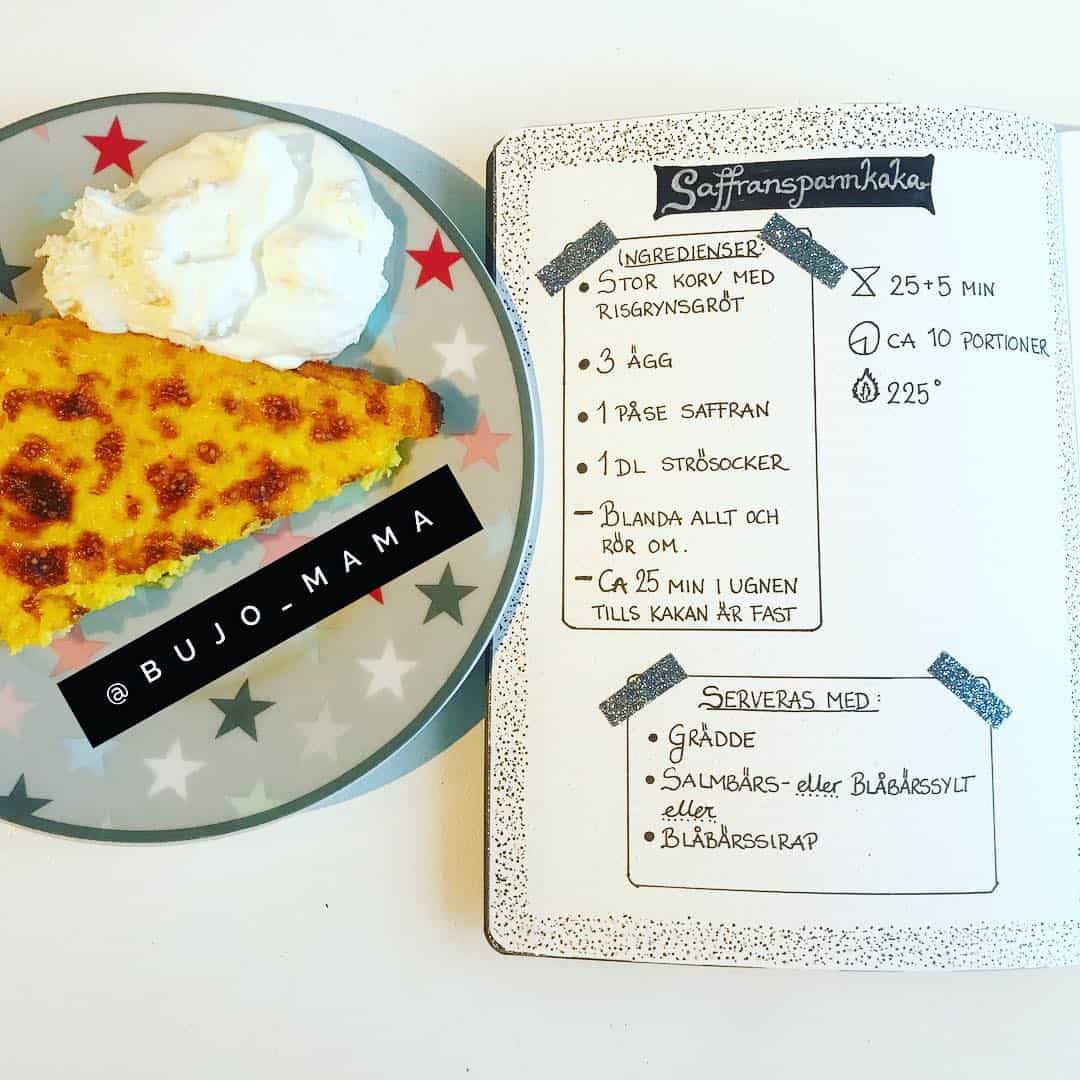 Saffranspannkaka
INGREDIENSER:
• STOR KORV MED
RISGRYNSGRÖT
• 3 ÄGG
• 1 PÅSE SAFFRAN
• 1 DL STRÖSOCKER
– BLANDA ALLT OCH
RÖR OM.
– CA 25 MIN I UGNEN
TILLS KAKAN ÄR FAST
25+5 MIN
CA 10 PORTIONER
225°
SERVERAS MED:
• GRÄDDE
• SALMBÄRS- eller BLÅBÄRSSYLT
eller
• BLÅBÄRSSIRAP
@BUJO_MAMA